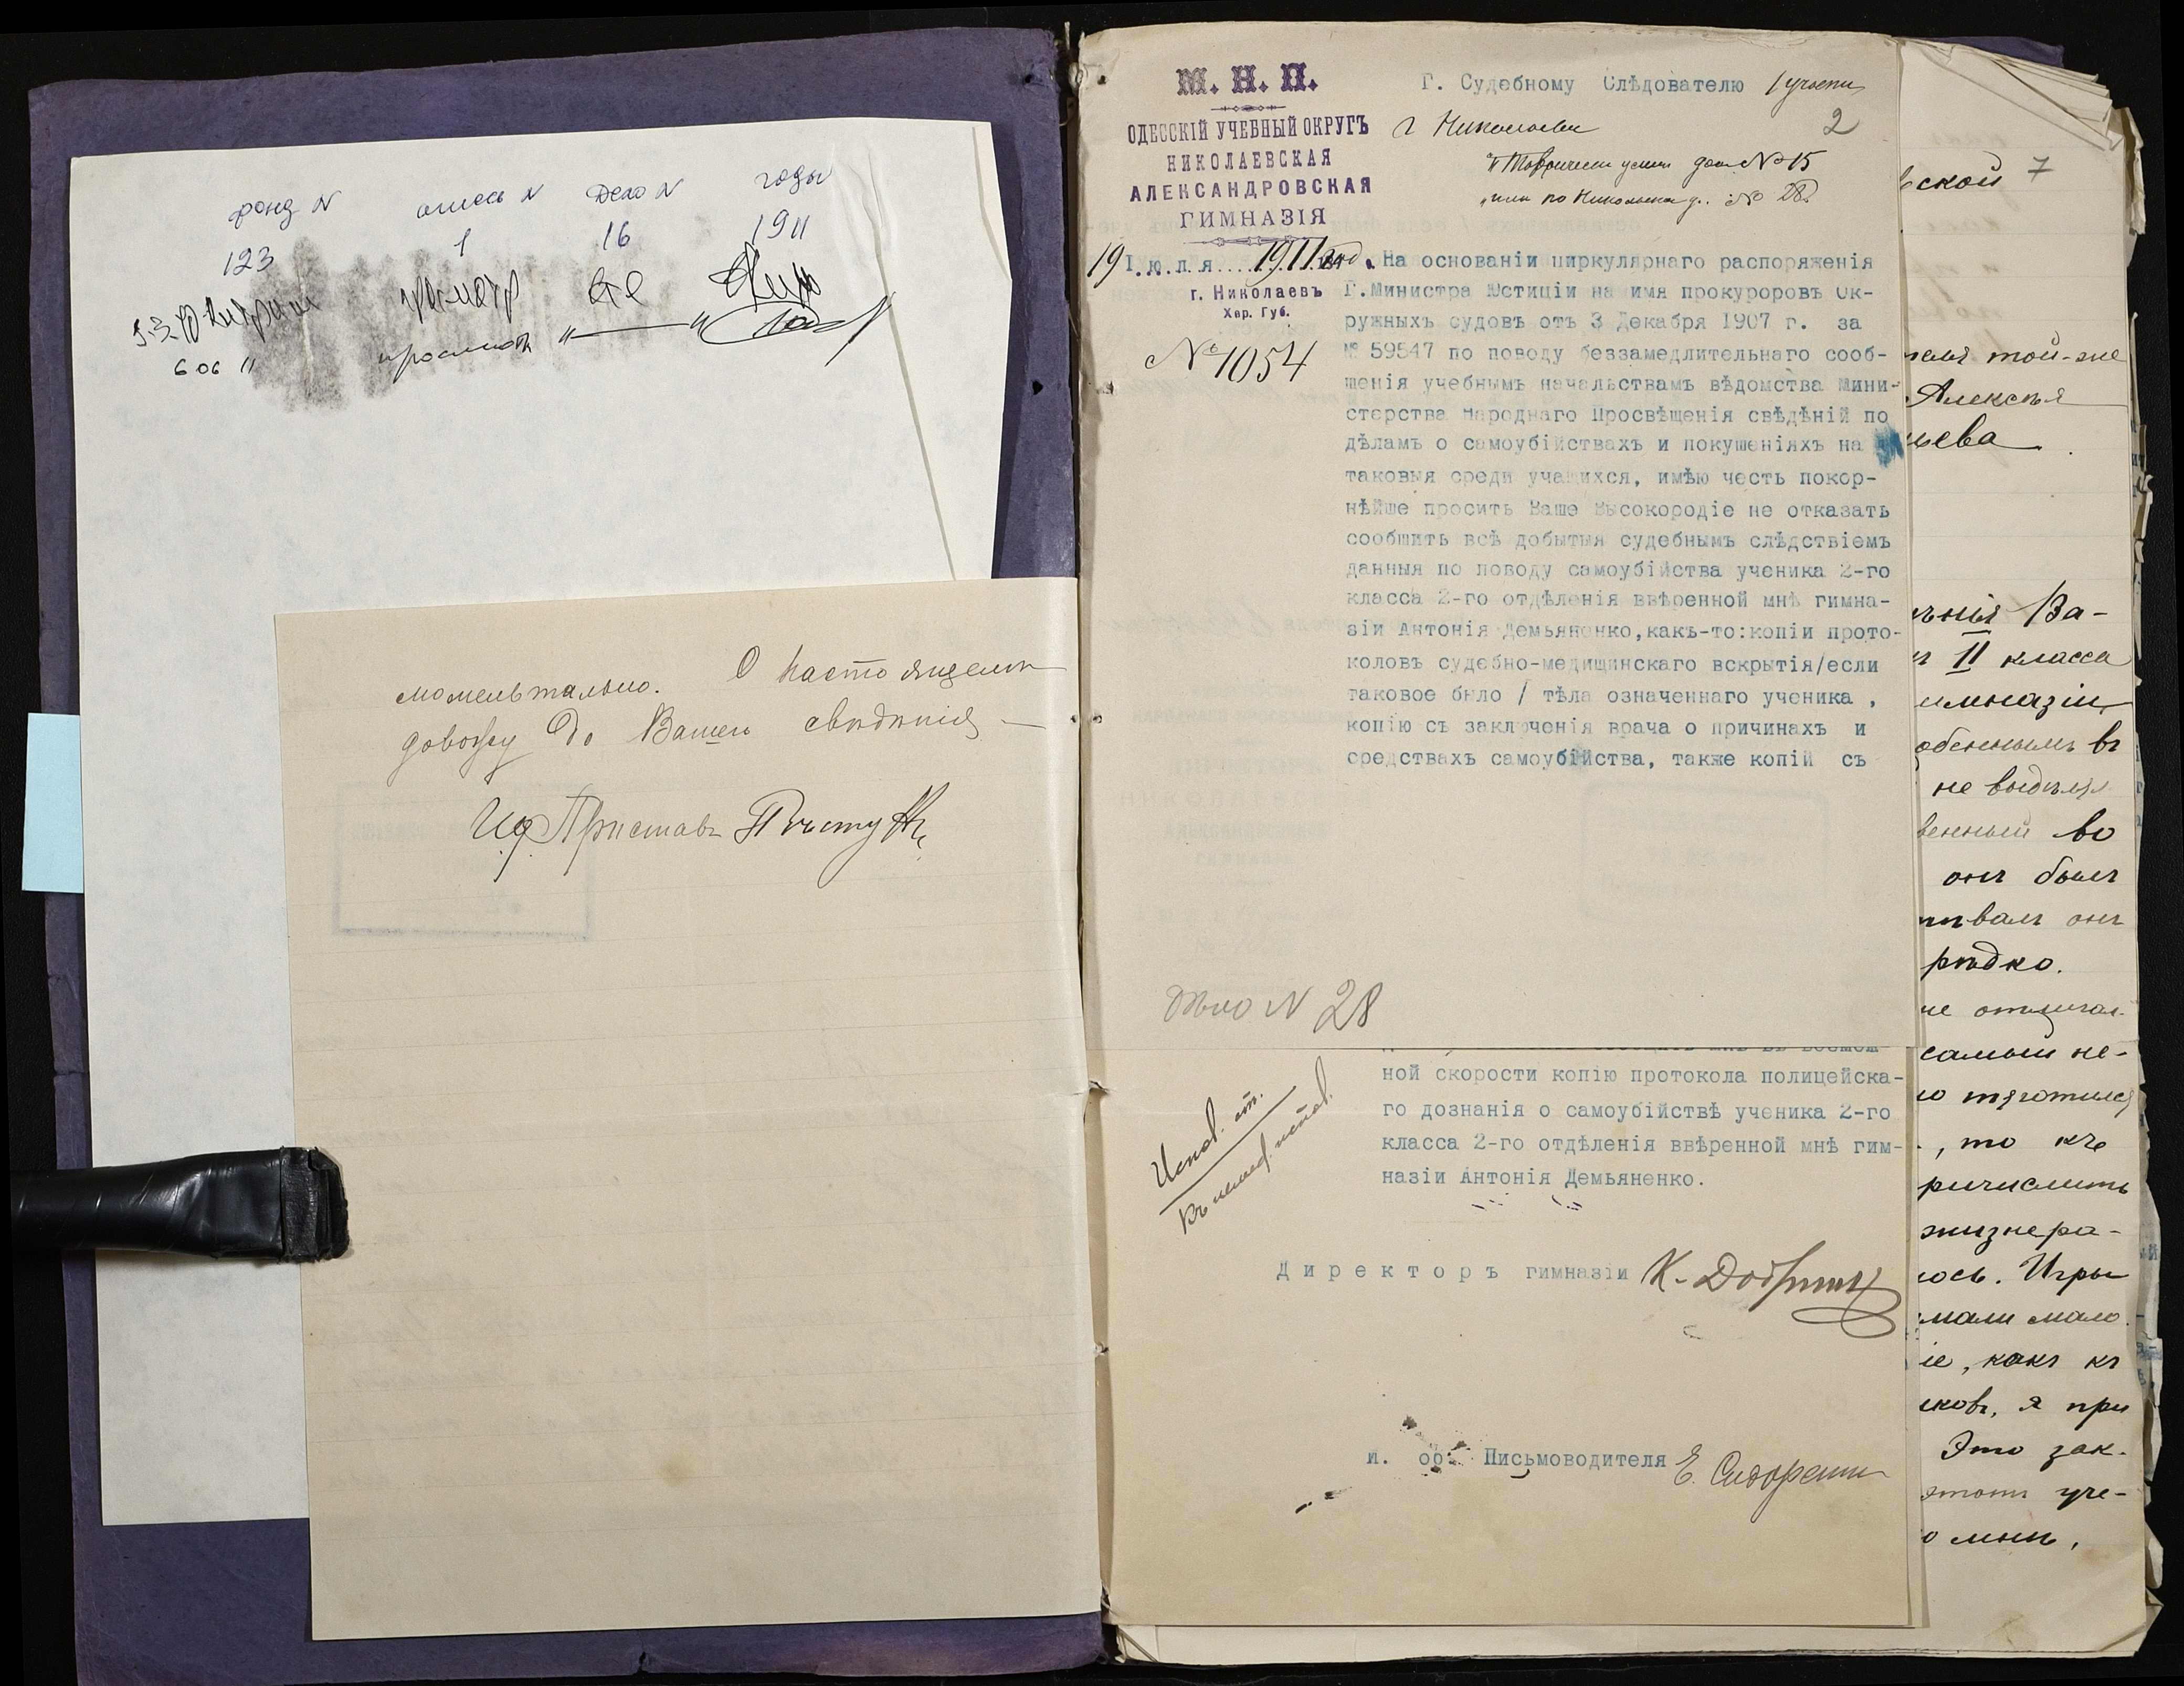 фонд N опись N дело N годы
123 1 16 1911
606 "
моментально. О настоящемъ
довожу до Вашего свѣдѣнія
Приставъ
М. Н. П.
ОДЕССКІЙ УЧЕБНЫЙ ОКРУГЪ
НИКОЛАЕВСКАЯ
АЛЕКСАНДРОВСКАЯ
ГИМНАЗІЯ
19 Іюля 1911
г. Николаевъ
Хер. Губ.
№ 1054
Г. Судебному Слѣдователю 1 участка
г Николаева 2
домъ № 15
или по № 28
На основаніи циркулярнаго распоряженія
Г.Министра Юстиціи на имя прокуроровъ Ок-
ружныхъ судовъ отъ 3 Декабря 1907 г. за
№ 59547 по поводу беззамедлительнаго сооб-
щенія учебнымъ начальствамъ вѣдомства Мини-
стерства Народнаго Просвѣщенія свѣдѣній по
дѣламъ о самоубійствахъ и покушеніяхъ на
таковыя среди учащихся, имѣю честь покор-
нѣйше просить Ваше Высокородіе не отказать
сообщить всѣ добытыя судебнымъ слѣдствіемъ
данныя по поводу самоубійства ученика 2-го
класса 2-го отдѣленія ввѣренной мнѣ гимна-
зіи Антонія Демьяненко,какъ-то:копіи прото-
коловъ судебно-медицинскаго вскрытія/если
таковое было / тѣла означеннаго ученика ,
копію съ заключенія врача о причинахъ и
средствахъ самоубійства, также копій съ
Дѣло N 28
ной скорости копію протокола полицейска-
го дознанія о самоубійствѣ ученика 2-го
класса 2-го отдѣленія ввѣренной мнѣ гим-
назіи Антонія Демьяненко.
Директоръ гимназіи
и. об. Письмоводителя Е. Сидоренко
ской 7
той-же
Алексѣя
ьева
Ва-
II класса
имназіи
въ
не выдѣлял
венный во
онъ былъ
онъ
рѣдко.
не отличал-
самый не-
тяготился
, то къ
ричислить
жизнера-
лось. Игры
мали мало
іе, какъ къ
ковъ, я при
Это зак-
этомъ уче-
о мнѣ,